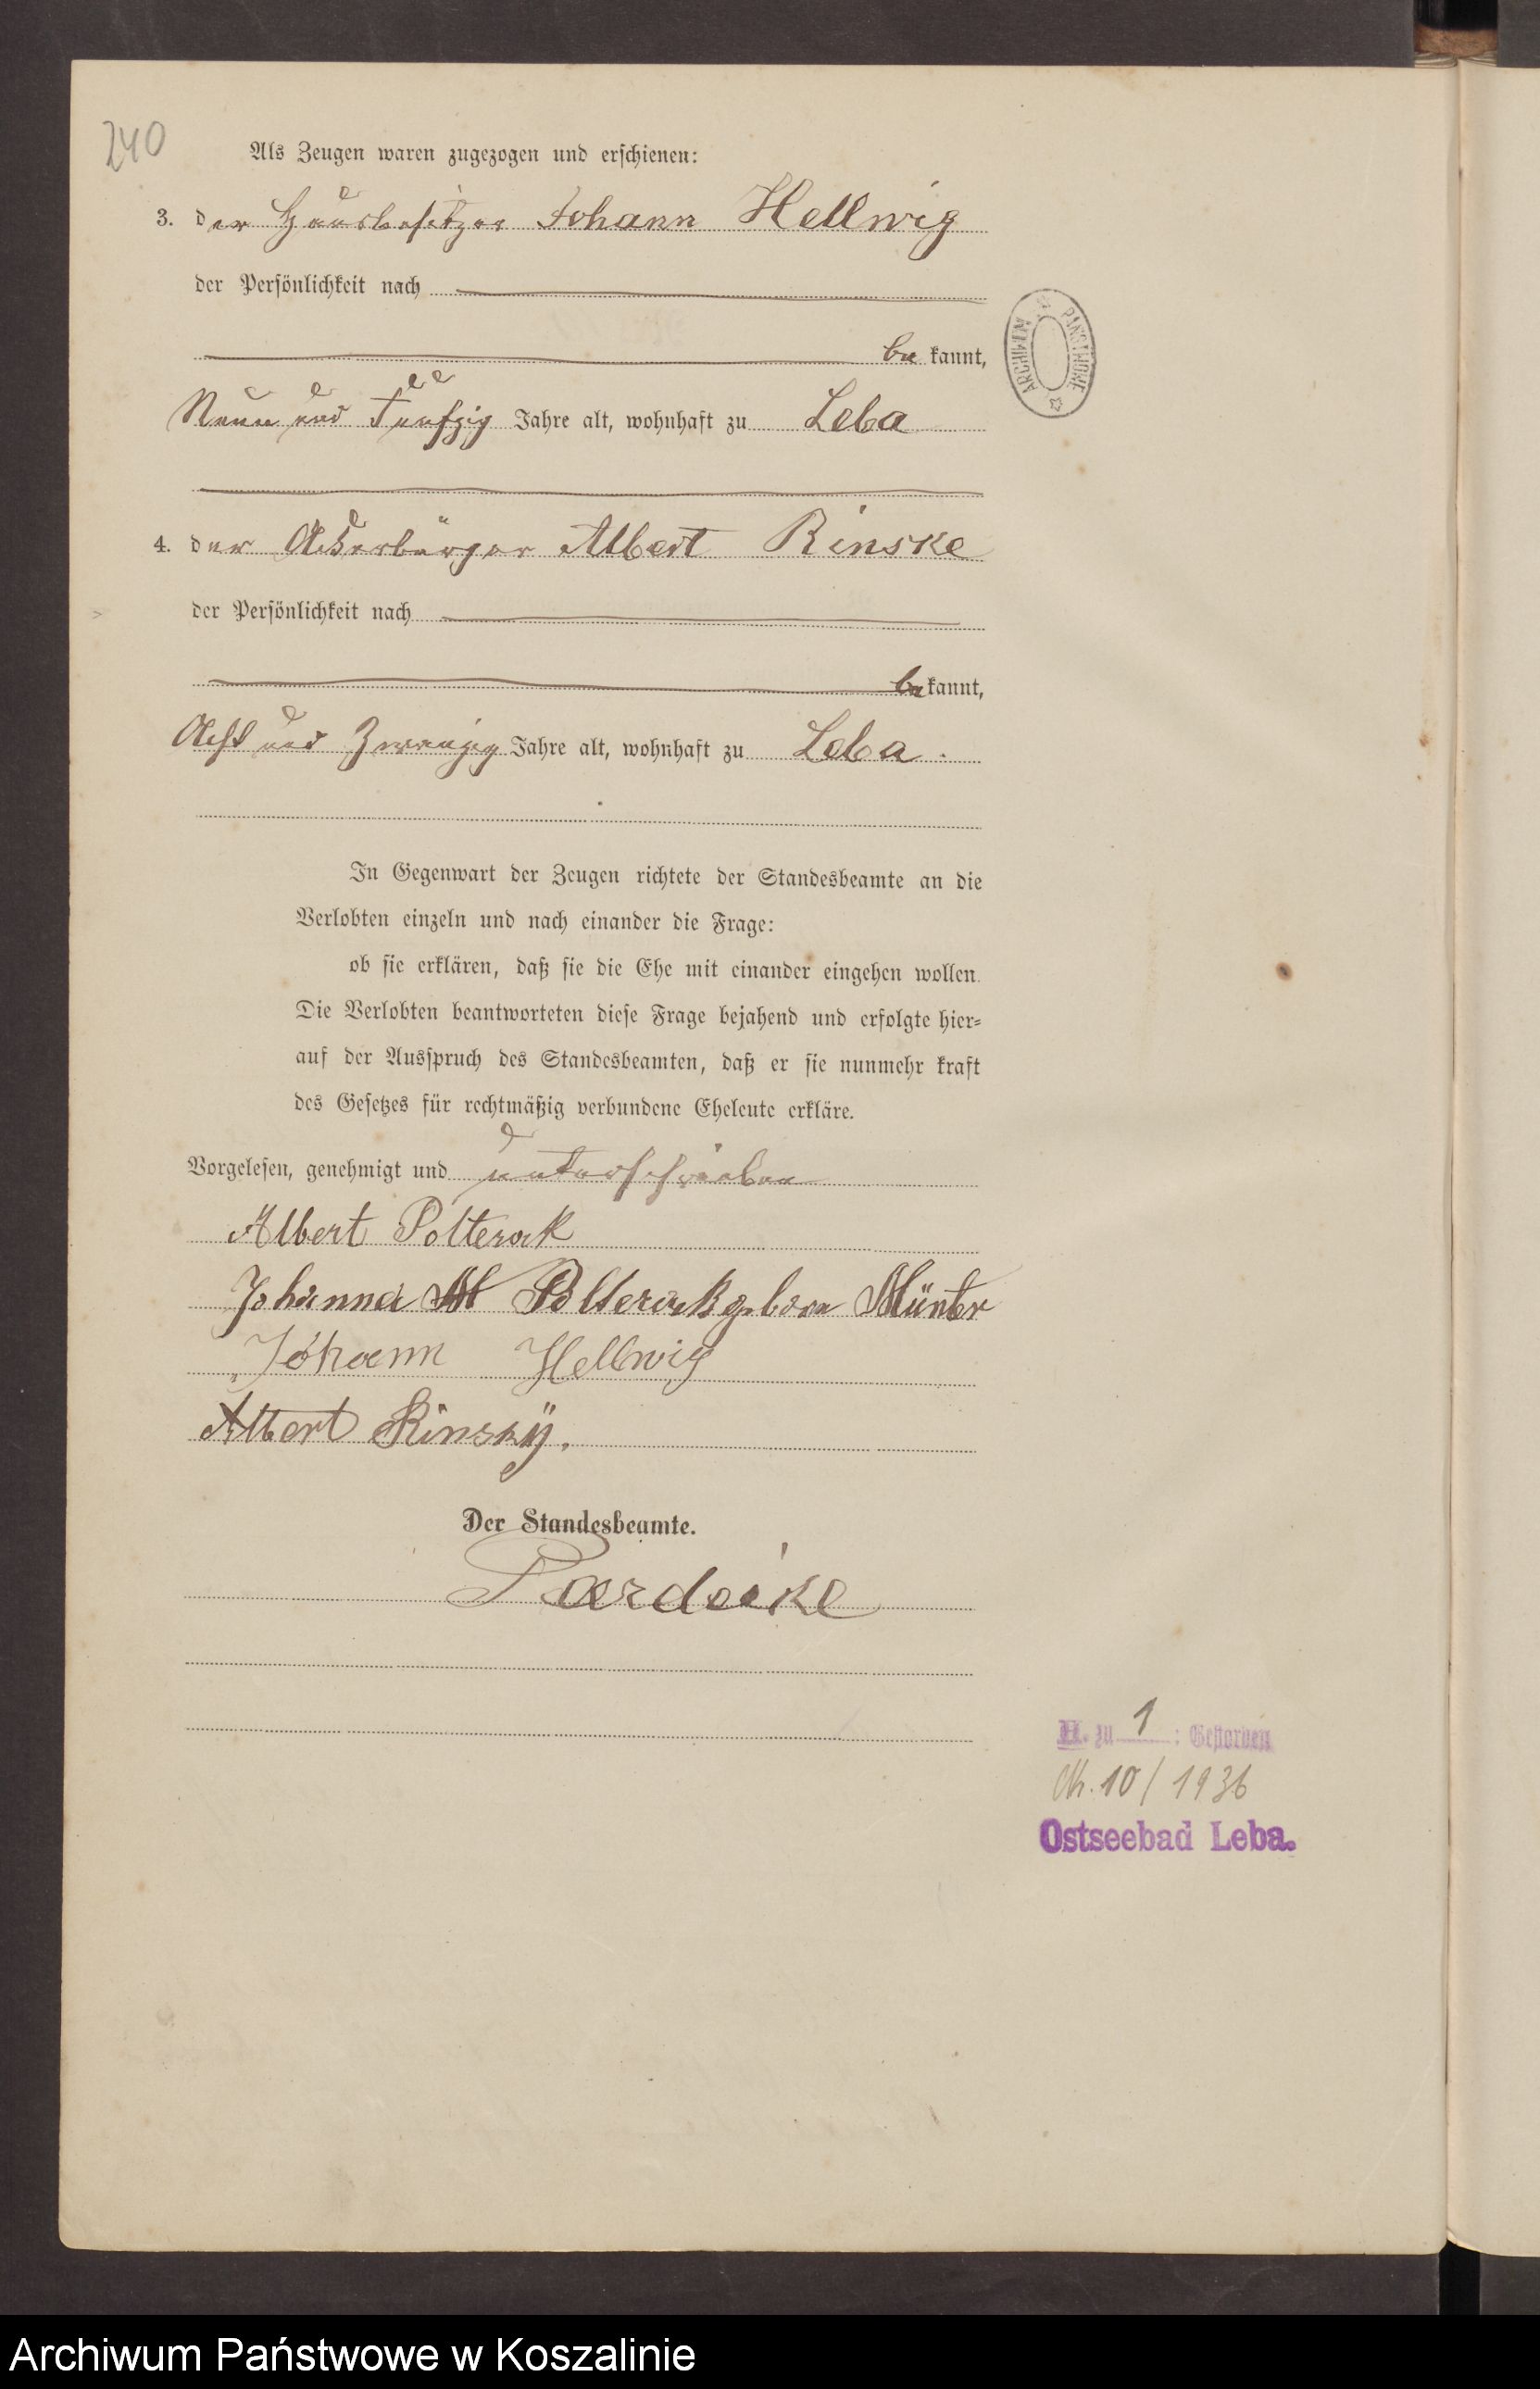 240
Als Zeugen waren zugezogen und erschienen:
3. der Hausbesitzer Johann Hellwig
der Persönlichkeit nach
be kannt,
Neun und Fünfzig Jahre alt, wohnhaft zu Leba
4. der Ackerbürger Albert Rinske
der Persönlichkeit nach
bekannt,
Acht und Zwanzig Jahre alt, wohnhaft zu Leba.
In Gegenwart der Zeugen richtete der Standesbeamte an die
Verlobten einzeln und nach einander die Frage:
ob sie erklären, daß sie die Ehe mit einander eingehen wollen.
Die Verlobten beantworteten diese Frage bejahend und erfolgte hier=
auf der Ausspruch des Standesbeamten, daß er sie nunmehr kraft
des Gesetzes für rechtmäßig verbundene Eheleute erkläre.
Vorgelesen, genehmigt und unterschrieben
Albert Polterok
Johanna Polterok geboren Münter
Johann Hellwig
Albert Rinskÿ.
Der Standesbeamte.
Pardeike
ARCHIWUM PAŃSTWOWE
H. zu 1 : Gestorben
Nr. 10/1936
Ostseebad Leba.
Archiwum Państwowe w Koszalinie